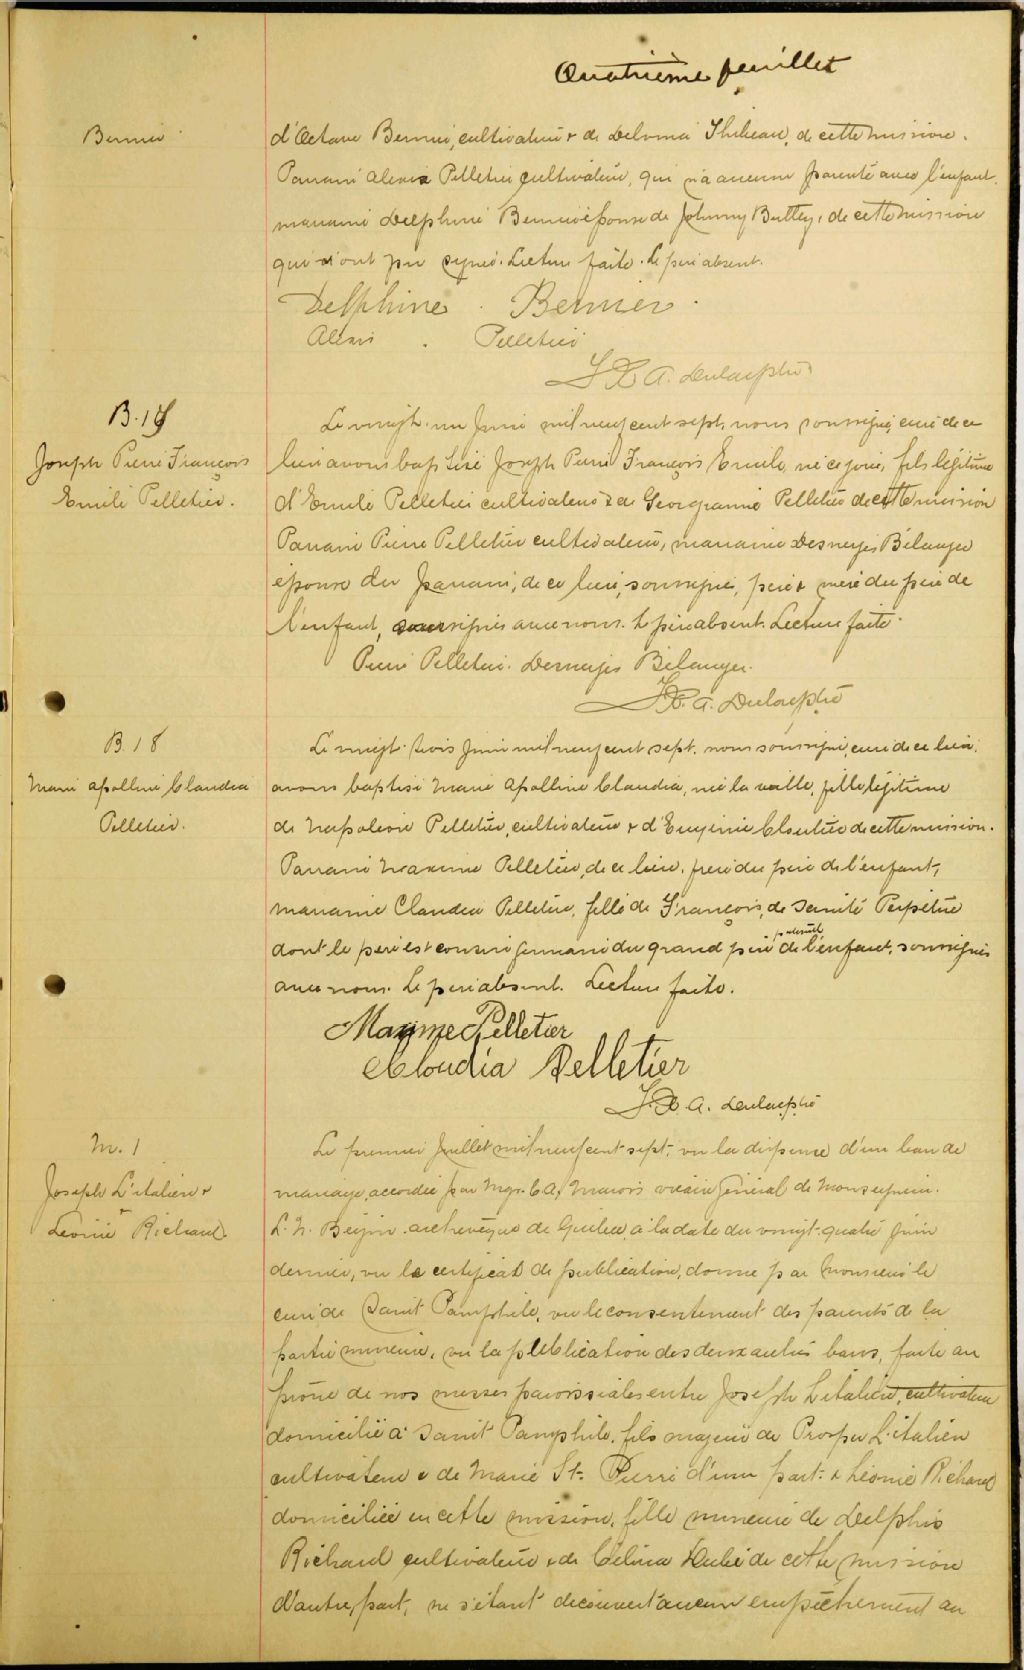 Quatrième feuillet
Bernier
d'Octave Bernier, cultivateur & de Delvina Thibeau, de cette mission.
Parrain Alexis Pelletier cultivateur, qui n'a aucune parenté avec l'enfant,
marraine Delphine Bernier épouse de Johnny Buttey, de cette mission
qui n'ont pu signer. Lecture faite. Le père absent.
Delphine Bernier
Alexis Pelletier
J. X. A.
B. 17
Joseph Pierre François
Emile Pelletier.
Le vingt-un Juin mil neuf cent sept, nous soussigné, curé de ce
lieu avons baptisé Joseph Pierre François Emile, né ce jour, fils légitime
d'Emile Pelletier cultivateur & de Georgianna Pelletier de cette mission
Parrain Pierre Pelletier cultivateur, marraine Desneiges Bélanger
épouse du parrain, de ce lieu, soussignés, père & mère du père de
l'enfant, soussignés avec nous. Le père absent. Lecture faite.
Pierre Pelletier. Desneiges Bélanger.
J. X. A.
B. 18
Marie Apolline Claudia
Pelletier.
Le vingt-trois Juin mil neuf cent sept, nous soussigné, curé de ce lieu,
avons baptisé Marie Apolline Claudia, née la veille, fille légitime
de Napoléon Pelletier, cultivateur & d'Eugénie Cloutier de cette mission.
Parrain Maxime Pelletier, de ce lieu, frère du père de l'enfant,
marraine Claudia Pelletier, fille de François, de Sainte Perpétue
dont le père est cousin germain du grand père paternel de l'enfant, soussignés
avec nous. Le père absent. Lecture faite.
Maxime Pelletier
Cloudia Pelletier
J. X. A.
M. 1
Joseph L'italien &
Léonie Richard.
Le premier Juillet mil neuf cent sept, vu la dispense d'un ban de
mariage, accordée par Mgr. C. A. Marois vicaire général de Monseigneur
L. N. Bégin archevêque de Québec, à la date du vingt-quatre Juin
dernier, vu le certificat de publication, donné par Monsieur le
curé de Saint Pamphile, vu le consentement des parents de la
partie mineure, vu la publication des deux autres bans, faite au
prône de nos messes paroissiales entre Joseph L'italien, cultivateur
domicilié à Saint Pamphile, fils majeur de Prosper L'italien
cultivateur & de Marie St. Pierre d'une part: & Léonie Richard
domiciliée en cette mission, fille mineure de Delphis
Richard cultivateur & de Célina Dubé de cette mission
d'autre part, ne s'étant découvert aucun empêchement au